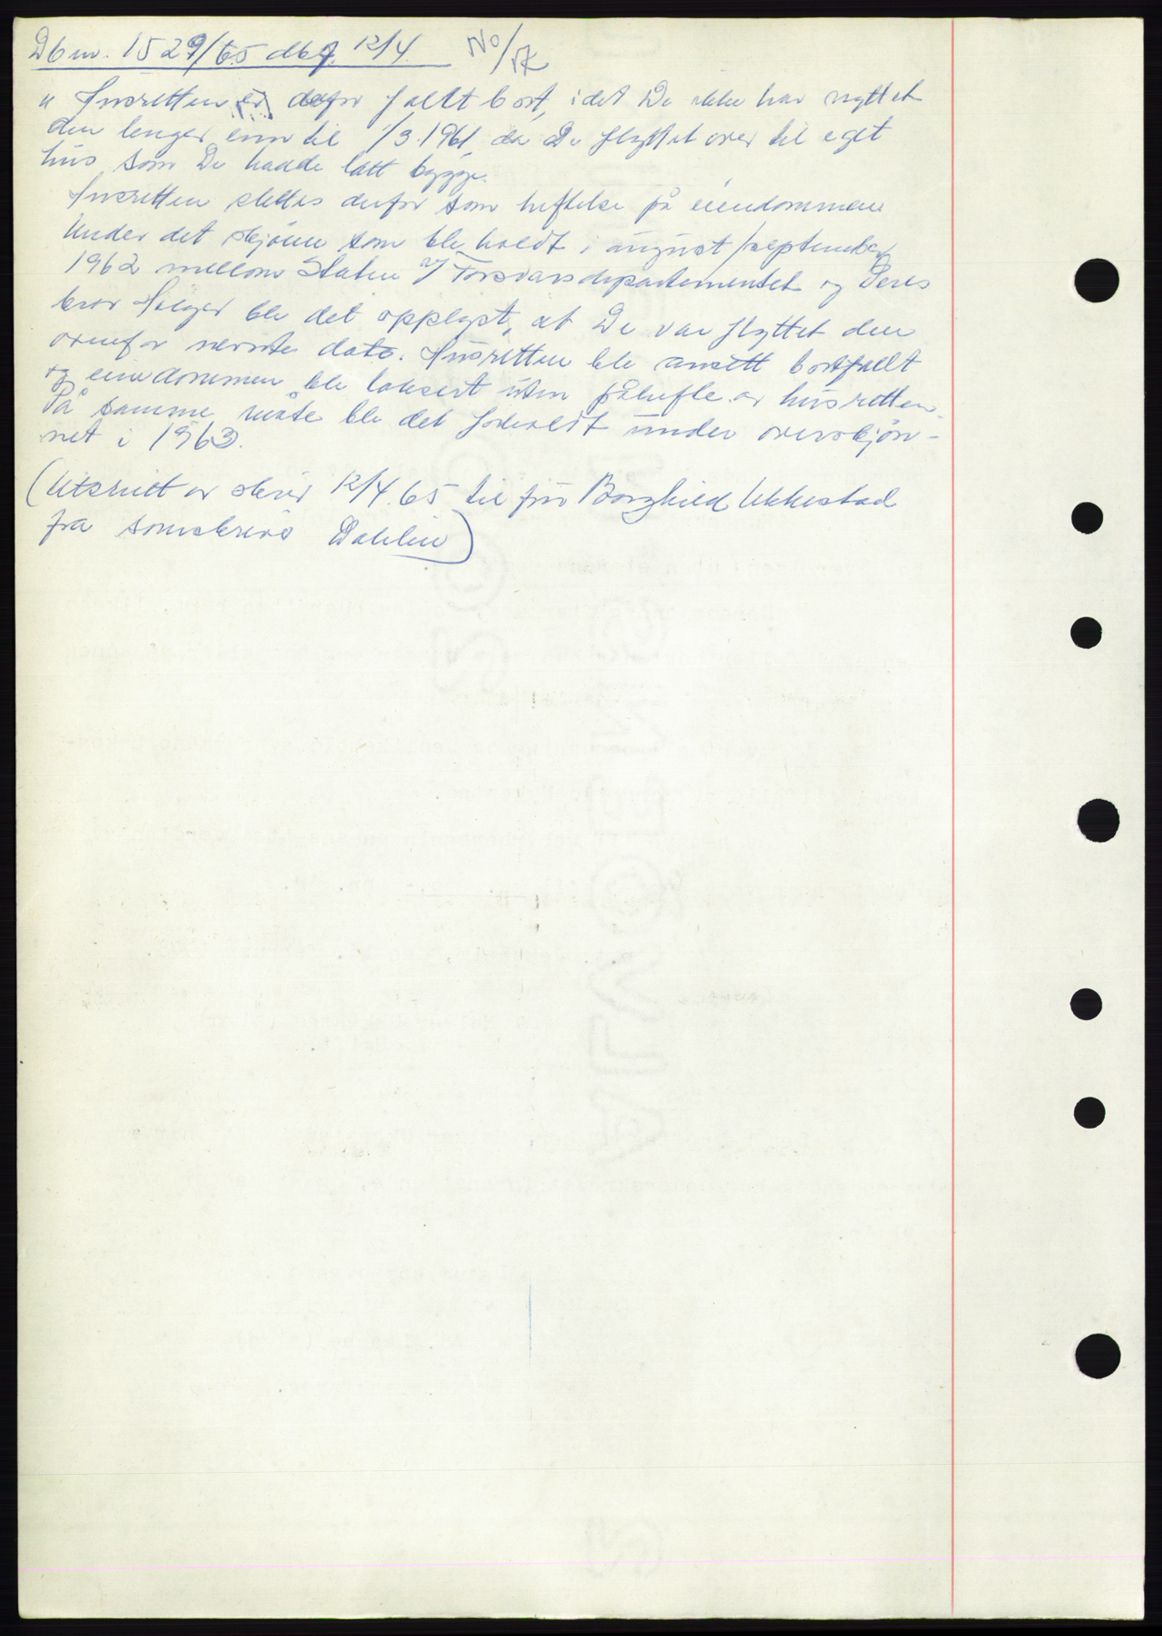 Dbnr. 1529/65 dbf. 12/4. No/
" Husretten er derfor falt bort, idet De ikke har nyttet
den lenger enn til 1/3.1961, da De flyttet over til eget
hus som De hadde latt bygge.
Husretten slettes derfor som heftelse på eiendommen
Under det skjønn som ble holdt i august/september
1962 mellom Staten v/ Forsvarsdepartementet og Deres
bror Holger ble det opplyst, at De var flyttet den
ovenfor nevnte dato. Husretten ble ansett bortfallt
og eiendommen ble taksert uten påhefte av husretten.
På samme måte ble det forholdt under overskjøn-
net i 1963.
(Utsnitt av skriv 12/4.65 til fru Borghild Ukkestad
fra sorenskriver Dahlin)